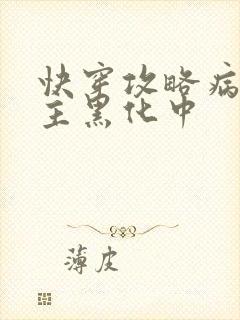 快穿攻略病
主黑化中
薄皮